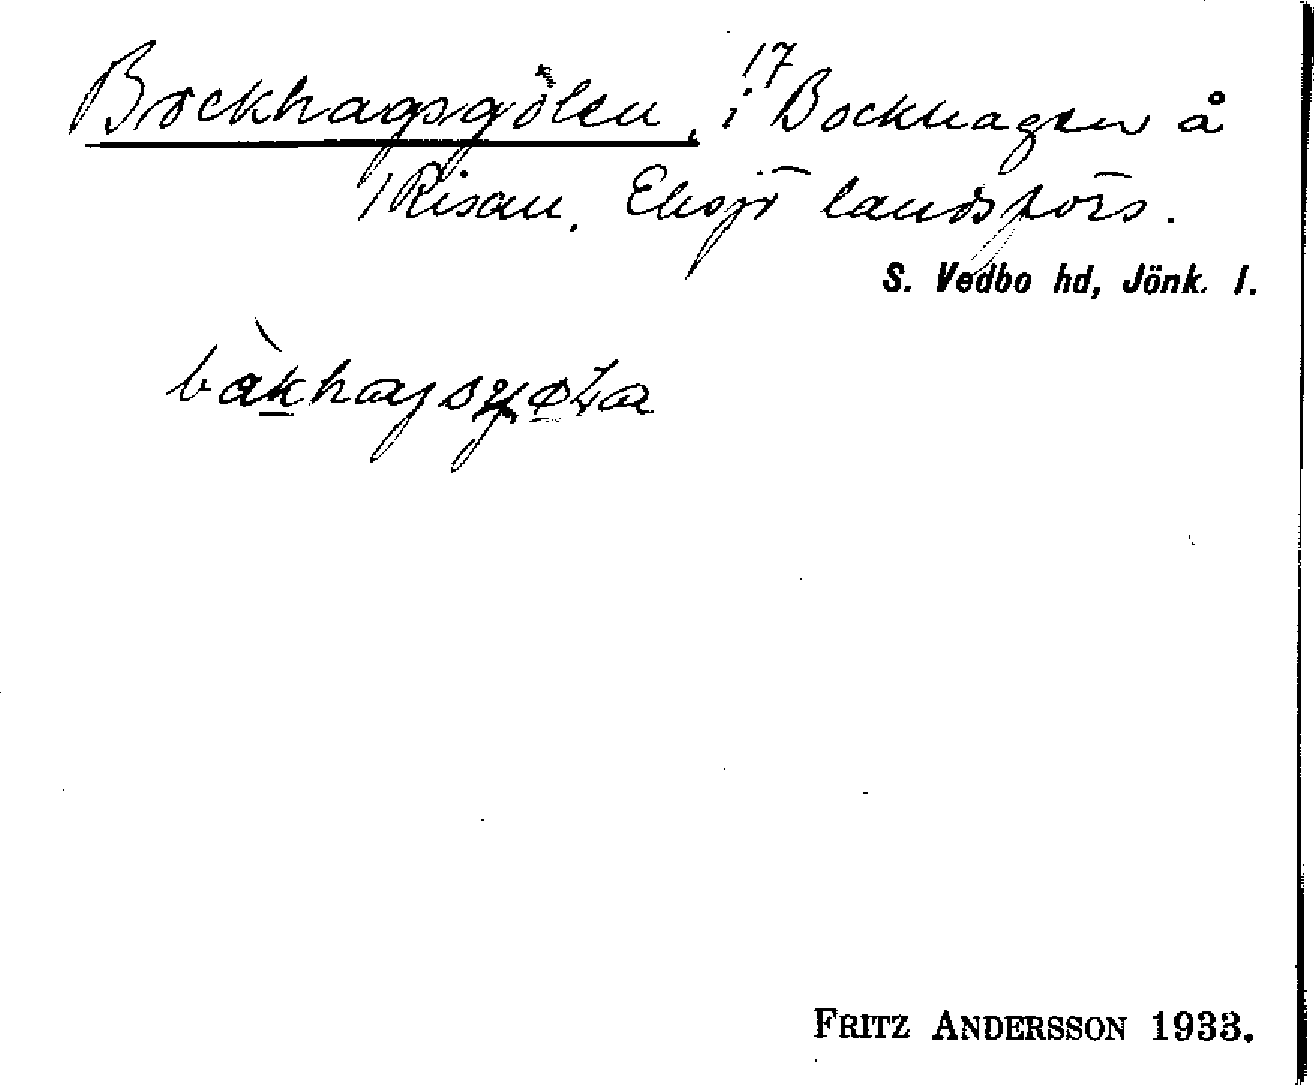 Bockhagsgölen, i 17 Bockhagen å
1 Risan. Eksjö landsförs.
S. Vedbo hd, Jönk. l.
FRITZ ANDERSSON 1933.